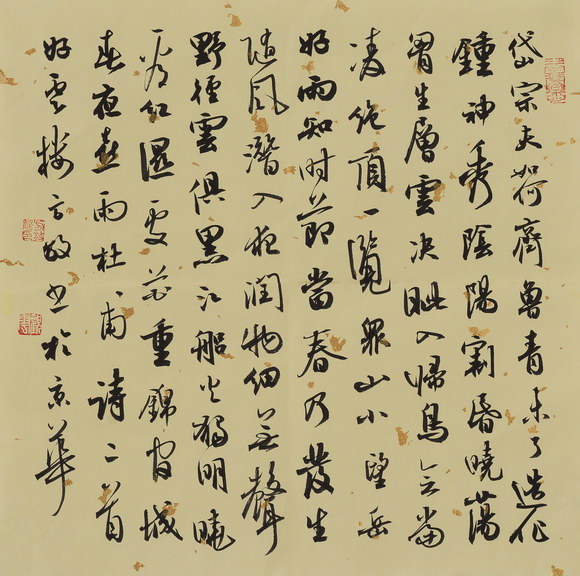 岱宗夫如何齊魯青未了造化
鍾神秀陰陽割昏曉蕩
胷生層雲决眦入歸鳥會當
凌绝頂一覽眾山小望岳
好雨知时節當春乃發生
随風潛入夜潤物细無聲
野徑雲俱黑江船火獨明曉
看红濕處花重錦官城
春夜喜雨杜甫詩二首
好雲樓书於京華